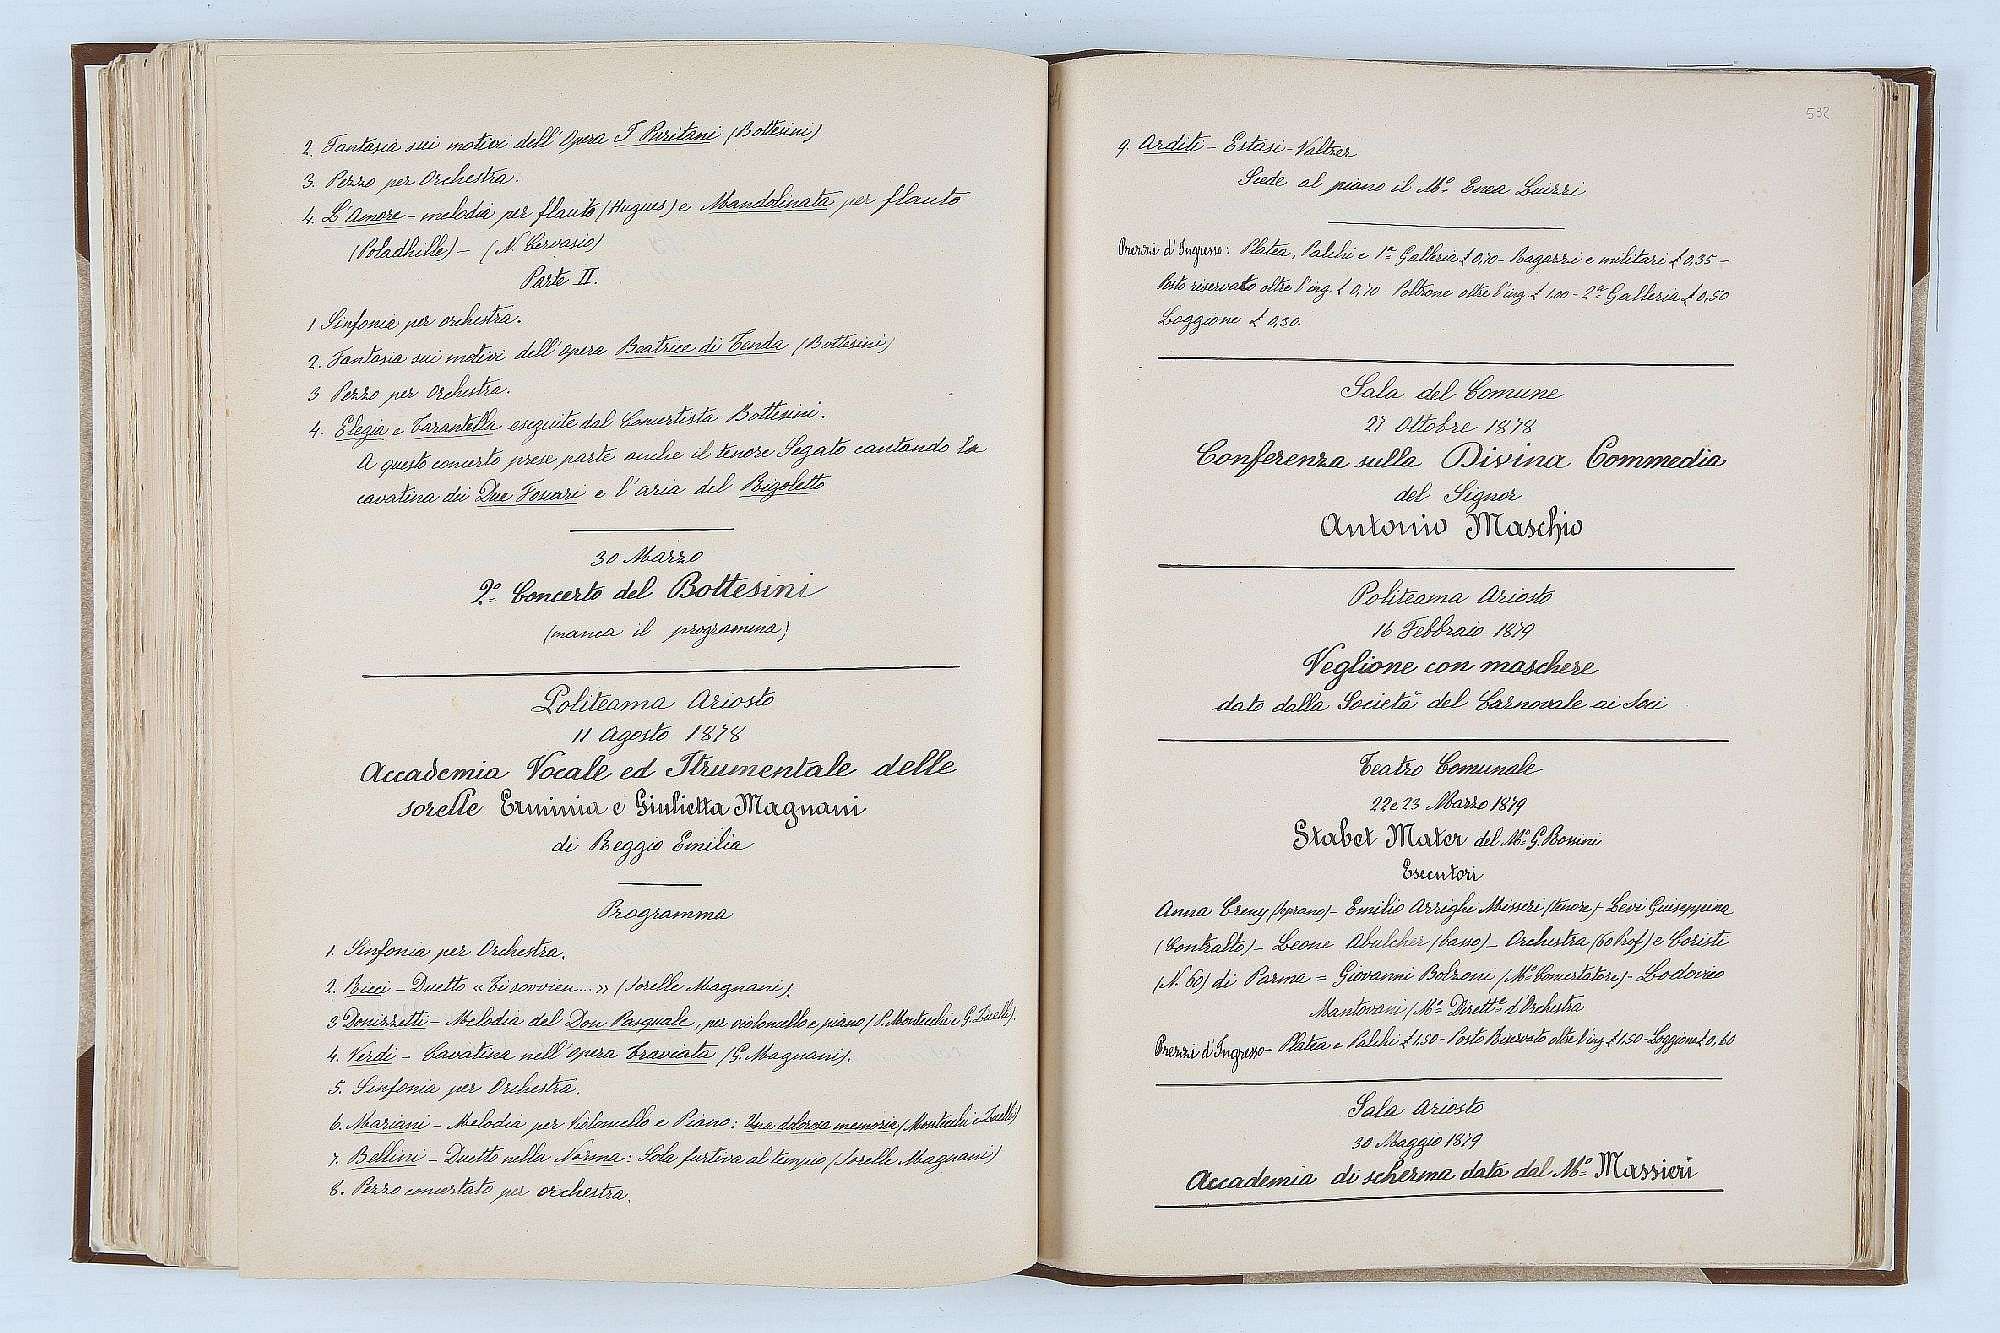 2. Fantasia sui motivi dell'Opera I Puritani (Bottesini)
3. Pezzo per Orchestra.
4. L'Amore - melodia per flauto (Hugues) e Mandolinata per flauto
(Poladhille) - (N. Cervasio)
Parte II.
1 Sinfonia per orchestra.
2. Fantasia sui motivi dell'opera Beatrice di Tenda (Bottesini)
3 Pezzo per Orchestra.
4. Elegia e Tarantella eseguite dal Concertista Bottesini.
A questo concerto prese parte anche il tenore Segato cantando la
cavatina dei Due Foscari e l'aria del Rigoletto
30 Marzo
2° Concerto del Bottesini
(manca il programma)
Politeama Ariosto
11 Agosto 1878
Accademia Vocale ed Strumentale delle
sorelle Erminia e Giulietta Magnani
di Reggio Emilia
Programma
1. Sinfonia per Orchestra.
2. Ricci - Duetto «Ti sovvien...» (Sorelle Magnani).
3 Donizzetti - Melodia del Don Pasquale, per violoncello e piano (P. Montecchi e G. Tirelli).
4. Verdi - Cavatina nell'opera Traviata (G. Magnani).
5. Sinfonia per Orchestra.
6. Mariani - Melodia per Violoncello e Piano: Una dolorosa memoria (Montecchi e Tirelli)
7. Bellini - Duetto nella Norma: Sola furtiva al tempio (Sorelle Magnani)
8. Pezzo concertato per orchestra.
532
9. Arditi - Estasi - Valtzer
Siede al piano il M° Enea Luizzi
Prezzi d'Ingresso: Platea, Palchi e 1ª Galleria £ 0,70 - Ragazzi e militari £ 0,35 -
Posto riservato oltre l'ing. £ 0,70 Poltrone oltre l'ing £ 1.00 - 2ª Galleria £ 0,50
Loggione £ 0,30.
Sala del Comune
27 Ottobre 1878
Conferenza sulla Divina Commedia
del Signor
Antonio Maschio
Politeama Ariosto
16 Febbraio 1879
Veglione con maschere
dato dalla Società del Carnovale ai Soci
Teatro Comunale
22 e 23 Marzo 1879
Stabet Mater del M° G. Rossini
Esecutori
Anna Creny (Soprano) - Emilio Arrighi Misseri (tenore) - Levi Guiseppina
(Contralto) - Leone Abulcher (basso) - Orchestra (60 Prof.) e Coristi
(N. 60) di Parma = Giovanni Bolzoni (M° Concertatore) - Lodovico
Mantovani (M° Dirett.e d'Orchestra
Prezzi d'Ingresso - Platea e Palchi £ 1.50 - Posto Riservato oltre l'ing £ 1,50 - Loggione £ 0,60
Sala Ariosto
30 Maggio 1879
Accademia di scherma data dal M° Massieri